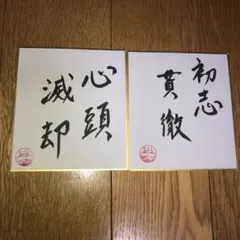 初志
貫徹
心頭
滅却